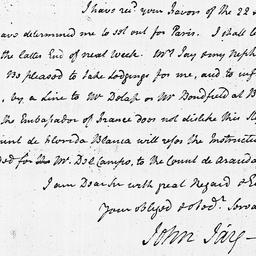 I have rec.d your Favors of the 22 &
have determined me to set out for Paris. I shall le
the latter End of next Week. Mrs Jay & my Neph
be pleased to take Lodgings for me, and to inf
, by a Line to Mr Delap or Mr Bondfield at B
the Embassador of France does not dislike this St
unt de Florida Blanca will refer the Instruct
ded for the Mr. Del Campo, to the Count de Aranda
I am Dear Sir with great Regard & E
Your obliged & obedt. Serva
John Jay